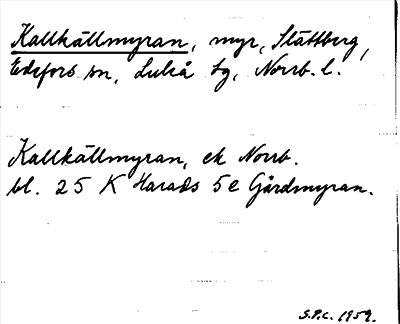 Kallkällmyran, myr, Slättberg,
Edefors sn, Luleå tg, Norrb. l.
Kallkällmyran, ek Norrb.
bl. 25 K Harads 5 e Gårdmyran.
S.P.C. 1959.